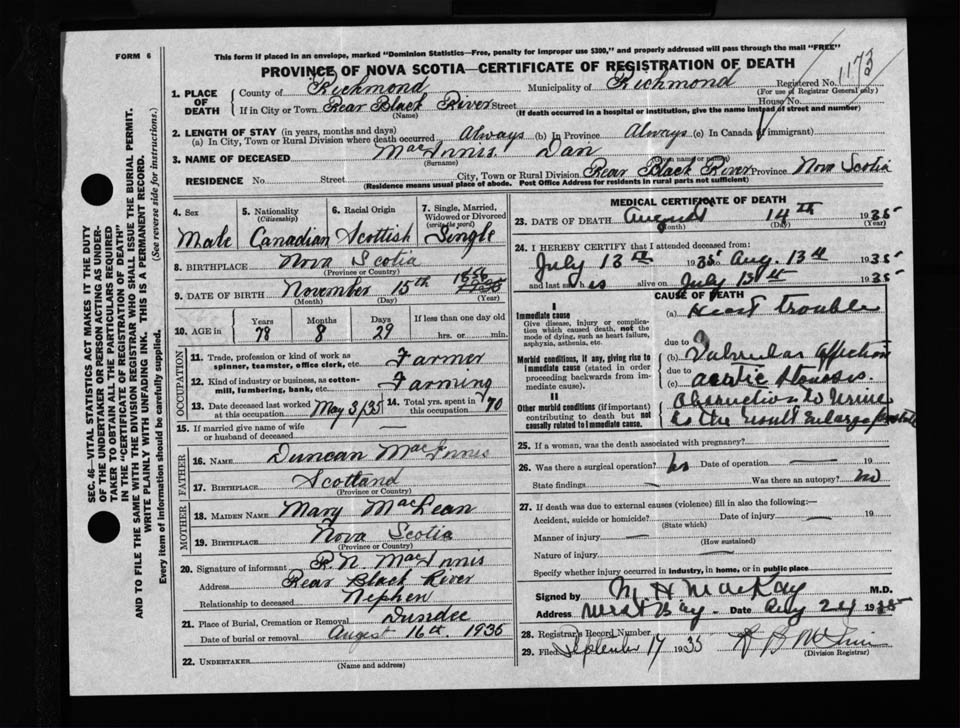 FORM 6
This form if placed in an envelope, marked "Dominion Statistics—Free, penalty for improper use $300," and properly addressed will pass through the mail "FREE"
PROVINCE OF NOVA SCOTIA—CERTIFICATE OF REGISTRATION OF DEATH
1. PLACE OF DEATH
County of Richmond Municipality of Richmond Registered No. 1173
(For use of Registrar General only)
If in City or Town Rear Black River Street House No.
(Name) (If death occurred in a hospital or institution, give the name instead of street and number)
2. LENGTH OF STAY (in years, months and days)
(a) In City, Town or Rural Division where death occurred Always (b) In Province Always (c) In Canada (if immigrant)
3. NAME OF DECEASED MacInnis. Dan
(Surname) (Given name or names)
RESIDENCE No. Street City, Town or Rural Division Rear Black River Province Nova Scotia
(Residence means usual place of abode. Post Office Address for residents in rural parts not sufficient)
SEC. 46—VITAL STATISTICS ACT MAKES IT THE DUTY
OF THE UNDERTAKER OR PERSON ACTING AS UNDER-
TAKER TO OBTAIN ALL THE PARTICULARS REQUIRED
IN THE "CERTIFICATE OF REGISTRATION OF DEATH"
AND TO FILE THE SAME WITH THE DIVISION REGISTRAR WHO SHALL ISSUE THE BURIAL PERMIT.
WRITE PLAINLY WITH UNFADING INK. THIS IS A PERMANENT RECORD.
Every item of information should be carefully supplied. (See reverse side for instructions.)
4. Sex
Male
5. Nationality
(Citizenship)
Canadian
6. Racial Origin
Scottish
7. Single, Married,
Widowed or Divorced
(write the word)
Single
8. BIRTHPLACE Nova Scotia
(Province or Country)
9. DATE OF BIRTH November 15th 1856
(Month) (Day) (Year)
10. AGE in
Years Months Days If less than one day old
78 8 29 hrs. or min.
OCCUPATION
11. Trade, profession or kind of work as
spinner, teamster, office clerk, etc. Farmer
12. Kind of industry or business, as cotton-
mill, lumbering, bank, etc. Farming
13. Date deceased last worked
at this occupation May 3/35
14. Total yrs. spent in
this occupation 70
15. If married give name of wife
or husband of deceased
FATHER
16. NAME Duncan MacInnis
17. BIRTHPLACE Scotland
MOTHER
18. MAIDEN NAME Mary MacLean
19. BIRTHPLACE Nova Scotia
(Province or Country)
20. Signature of informant R.N. MacInnis
Address Rear Black River
Relationship to deceased Nephew
21. Place of Burial, Cremation or Removal Dundee
Date of burial or removal August 16th. 1935
22. UNDERTAKER
(Name and address)
MEDICAL CERTIFICATE OF DEATH
23. DATE OF DEATH August 14th 1935
(Month) (Day) (Year)
24. I HEREBY CERTIFY that I attended deceased from:
July 13th 1935 to Aug. 13th 1935
and last saw h is alive on July 13th 1935
CAUSE OF DEATH
I
Immediate cause
Give disease, injury or complica-
tion which caused death, not the
mode of dying, such as heart failure,
asphyxia, asthenia, etc.
Morbid conditions, if any, giving rise to
immediate cause (stated in order
proceeding backwards from im-
mediate cause).
II
Other morbid conditions (if important)
contributing to death but not
causally related to immediate cause.
(a) Heart trouble
due to
(b) Valvular Affection
due to
(c) aortic stenosis.
Obstruction to Urine
to the result Enlarge prostate
25. If a woman, was the death associated with pregnancy?
26. Was there a surgical operation? no Date of operation 19
State findings Was there an autopsy? no
27. If death was due to external causes (violence) fill in also the following:—
Accident, suicide or homicide? Date of injury 19
(State which)
Manner of injury
(How sustained)
Nature of injury
Specify whether injury occurred in industry, in home, or in public place
Signed by M H MacKay M.D.
Address West Bay Date Aug 24 1935
28. Registrar's Record Number
29. Filed September 17 1935
(Division Registrar)